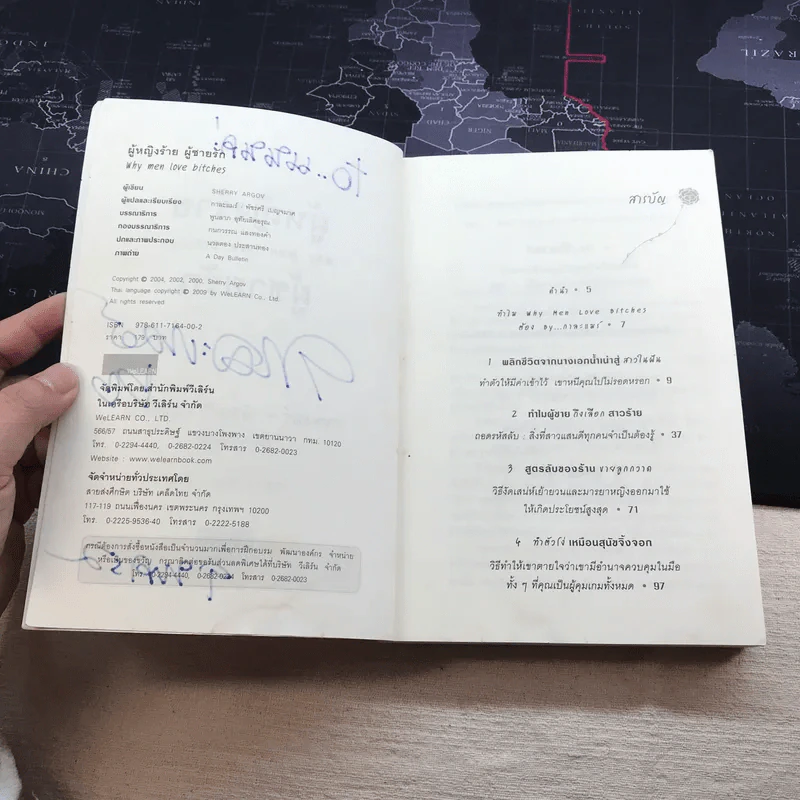 ผู้หญิงร้าย ผู้ชายรัก
Why men love bitches
ผู้เขียน SHERRY ARGOV
ผู้แปลและเรียบเรียง กาละแมร์ : พัชรศรี เบญจมาศ
บรรณาธิการ
กองบรรณาธิการ กนกวรรณ แสงทองคำ
ปกและภาพประกอบ นวลตอง ประสานทอง
ภาพถ่าย A Day Bulletin
Copyright © 2004, 2002, 2000, Sherry Argov
Thai language copyright © 2009 by WeLEARN Co., Ltd.
All rights reserved
ISBN 978-611-7164-00-2
ราคา บาท
WeLEARN
จัดพิมพ์โดย สำนักพิมพ์วีเลิร์น
ในเครือบริษัท วีเลิร์น จำกัด
WeLEARN CO., LTD.
566/57 ถนนสาธุประดิษฐ์ แขวงบางโพงพาง เขตยานนาวา กทม. 10120
โทร. 0-2294-4440, 0-2682-0224 โทรสาร 0-2682-0023
Website : www.welearnbook.com
จัดจำหน่ายทั่วประเทศโดย
สายส่งศึกษิต บริษัท เคล็ดไทย จำกัด
117-119 ถนนเฟื่องนคร เขตพระนคร กรุงเทพฯ 10200
โทร. 0-2225-9536-40 โทรสาร 0-2222-5188
กรณีต้องการสั่งซื้อหนังสือเป็นจำนวนมากเพื่อการฝึกอบรม พัฒนาองค์กร จำหน่าย
หรือเป็นของขวัญ กรุณาติดต่อขอรับส่วนลดพิเศษได้ที่บริษัท วีเลิร์น จำกัด
โทร. 0-2294-4440, 0-2682-0224 โทรสาร 0-2682-0023
สารบัญ
คำนำ • 5
ทำไม Why Men Love Bitches
ต้อง by...กาละแมร์ • 7
1 พลิกชีวิตจากนางเอกน้ำเน่าสู่ สาวในฝัน
ทำตัวให้มีค่าเข้าไว้ เขาหนีคุณไปไม่รอดหรอก • 9
2 ทำไมผู้ชาย ถึงเลือก สาวร้าย
ถอดรหัสลับ : สิ่งที่สาวแสนดีทุกคนจำเป็นต้องรู้ • 37
3 สูตรลับของร้าน ขายลูกกวาด
วิธีงัดเสน่ห์เย้ายวนและมารยาหญิงออกมาใช้
ให้เกิดประโยชน์สูงสุด • 71
4 ทำตัวโง่ เหมือนสุนัขจิ้งจอก
วิธีทำให้เขาตายใจว่าเขามีอำนาจควบคุมในมือ
ทั้ง ๆ ที่คุณเป็นผู้คุมเกมทั้งหมด • 97
CHINA
BRAZIL